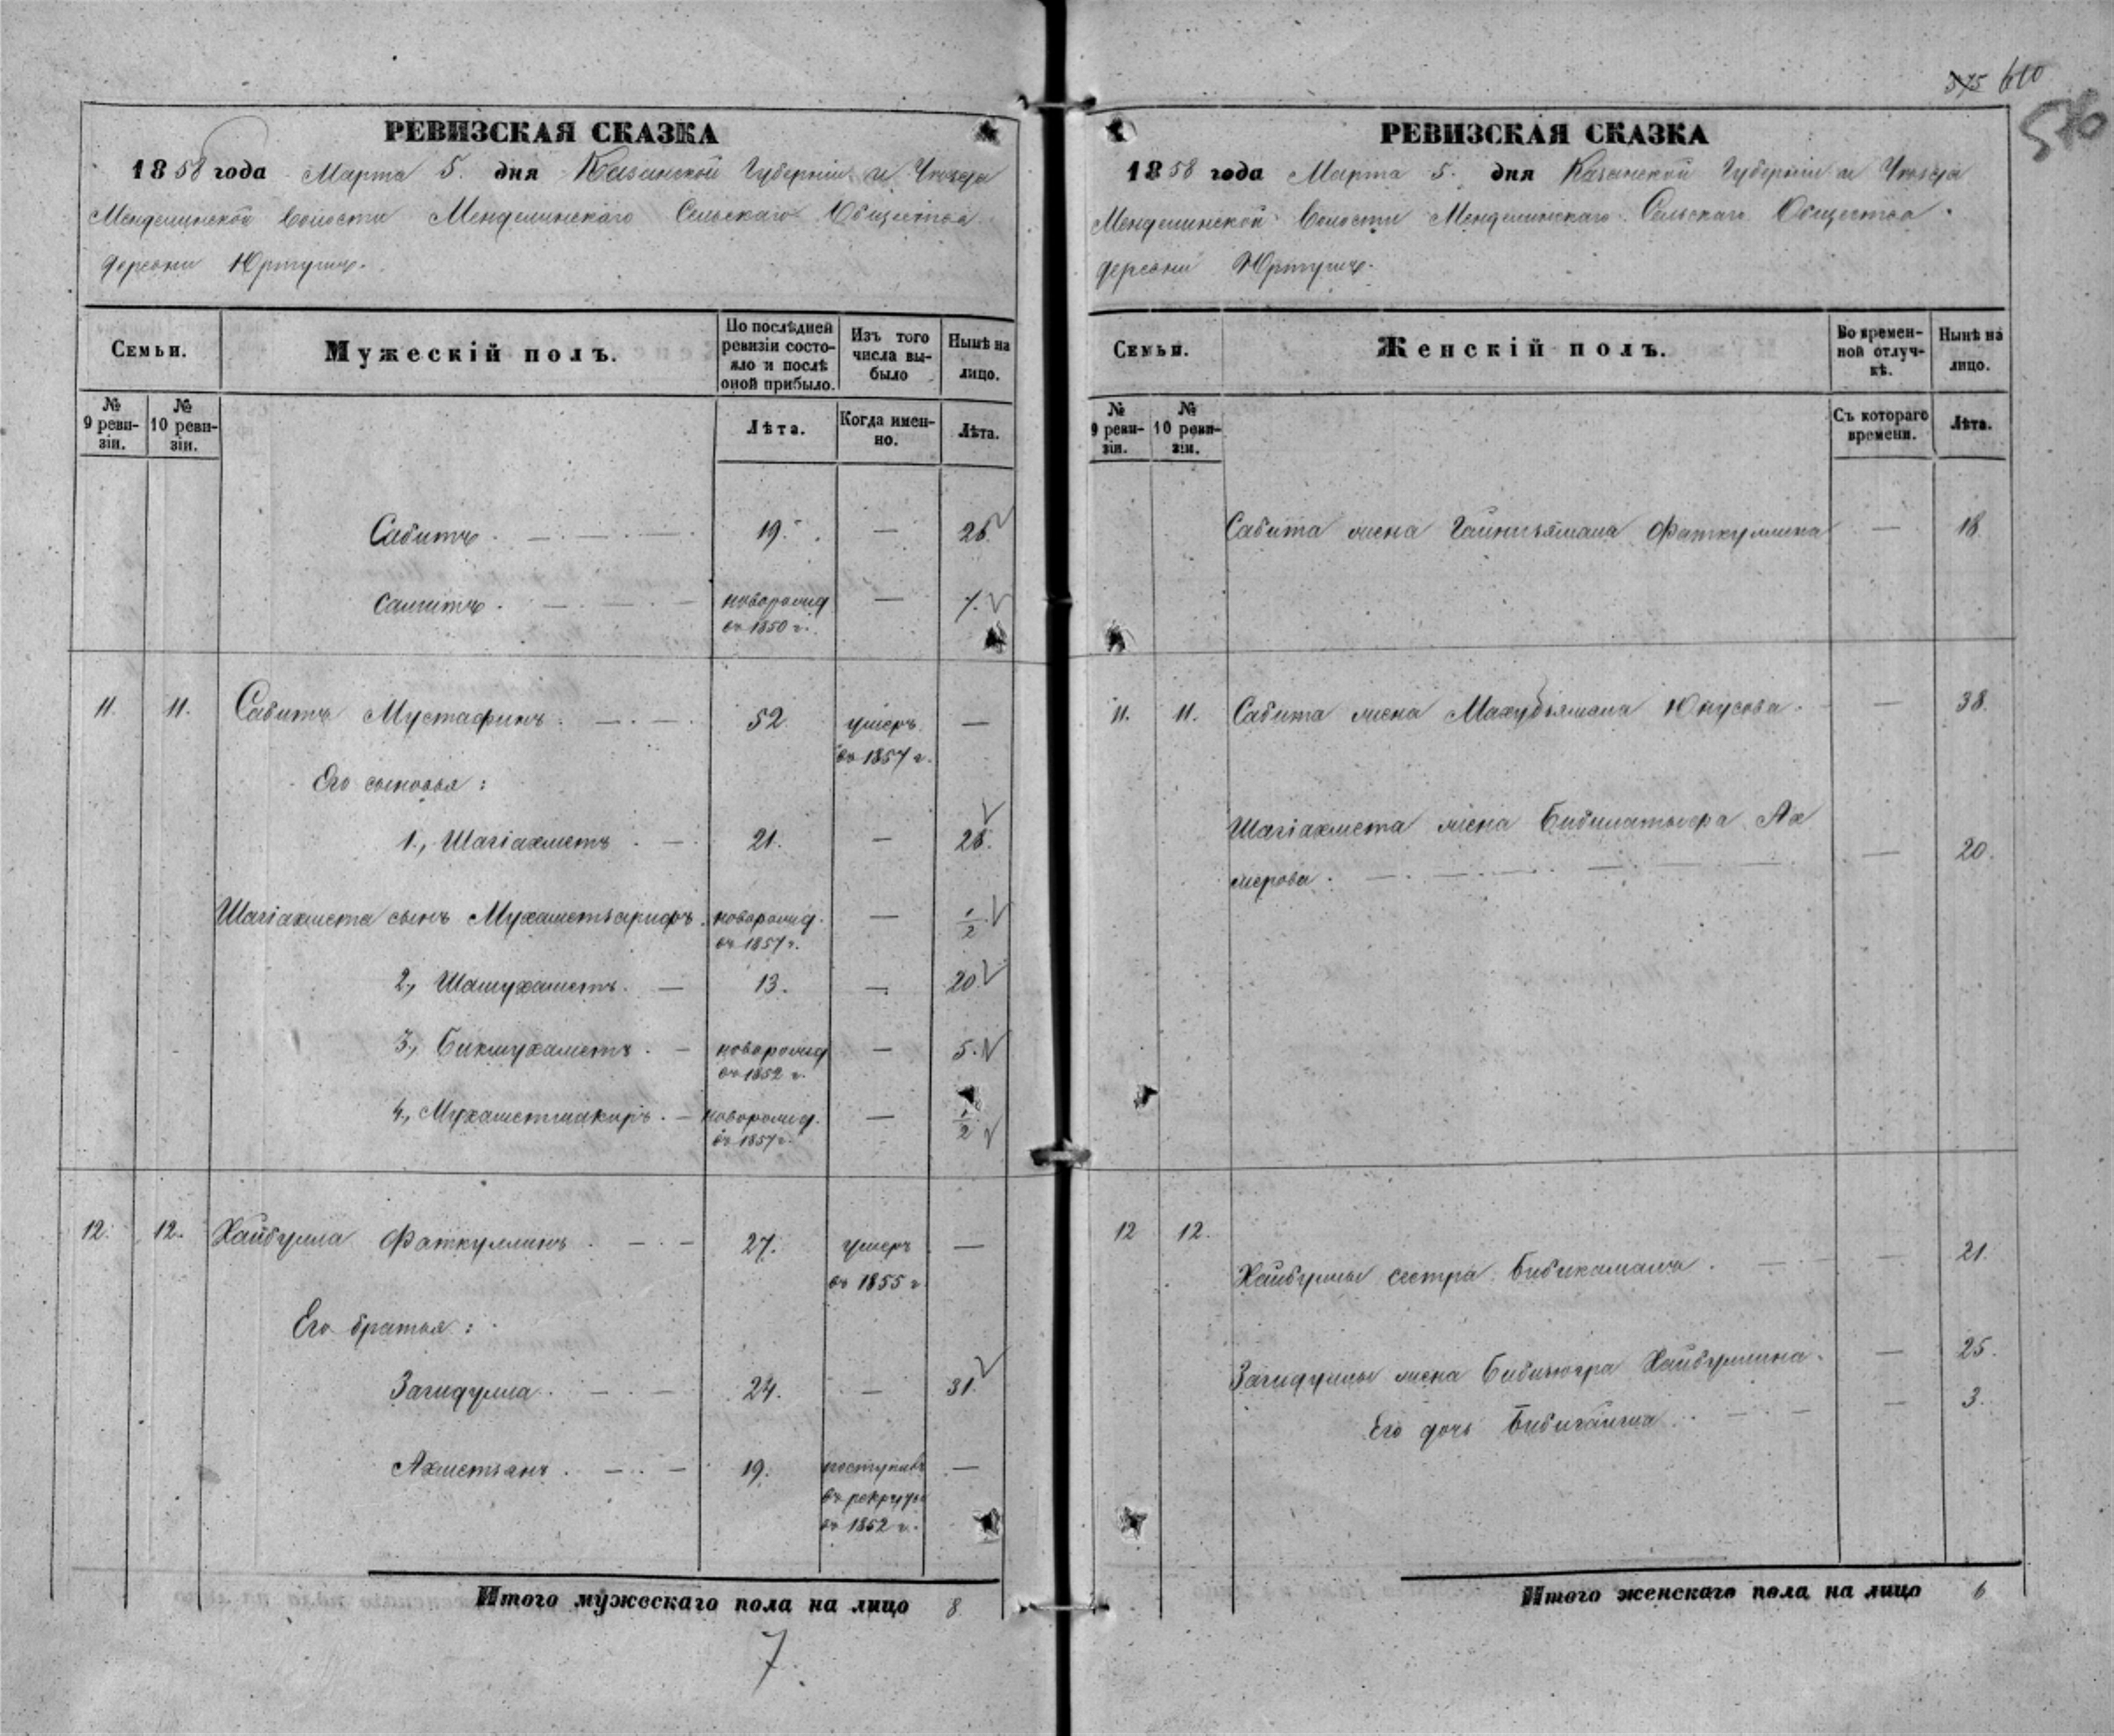 РЕВИЗСКАЯ СКАЗКА
1858 года Марта 5. дня Казанской Губерніи и Уѣзда
Менделинской Волости Менделинскаго Сельскаго Общества
деревни Юртушъ.
Семьи.
Мужескій полъ.
По послѣдней ревизіи состояло и послѣ оной прибыло.
Изъ того числа выбыло
Нынѣ на лицо.
№ 9 ревизіи.
№ 10 ревизіи.
Лѣта.
Когда именно.
Лѣта.
Сабитъ. 19. — 26.
Сагитъ. новорожд — 7.
въ 1850 г.
11. 11. Сабитъ Мустафинъ. 52. умеръ —
въ 1857 г.
Его сыновья:
1., Шагіахметъ 21. — 28.
Шагіахмета сынъ Мухаметьарифъ. новорожд. — 1/2
въ 1857 г.
2., Шамухаметъ. 13. — 20
3., Бикмухаметъ. новорожд — 5.
въ 1852 г.
4., Мухаметшакиръ. новорожд. — 1/2
въ 1857 г.
12. 12. Хайбулла Фаткуллинъ. 27. умеръ —
въ 1855 г
Его братья:
Загидулла. 24. — 31.
Ахметьянъ. 19. поступилъ —
въ рекруты
въ 1852 г.
Итого мужескаго пола на лицо 8
7.
375 610
576
РЕВИЗСКАЯ СКАЗКА
1858 года Марта 5. дня Казанской Губерніи и Уѣзда
Менделинской Волости Менделинскаго Сельскаго Общества
деревни Юртушъ.
Семьи.
Женскій полъ.
Во временной отлучкѣ.
Нынѣ на лицо.
№ 9 ревизіи.
№ 10 ревизіи.
Съ котораго времени.
Лѣта.
Сабита жена Гайнизямала Фаткуллина — 18.
11. 11. Сабита жена Махубзямала Юнусова. — 38.
Шагіахмета жена Ах
мерова. — 20.
12 12.
Хайбуллы сестра Бибикамала. — 21.
Загидуллы жена Хайбуллина. — 25.
Его дочь — 3.
Итого женскаго пола на лицо 6